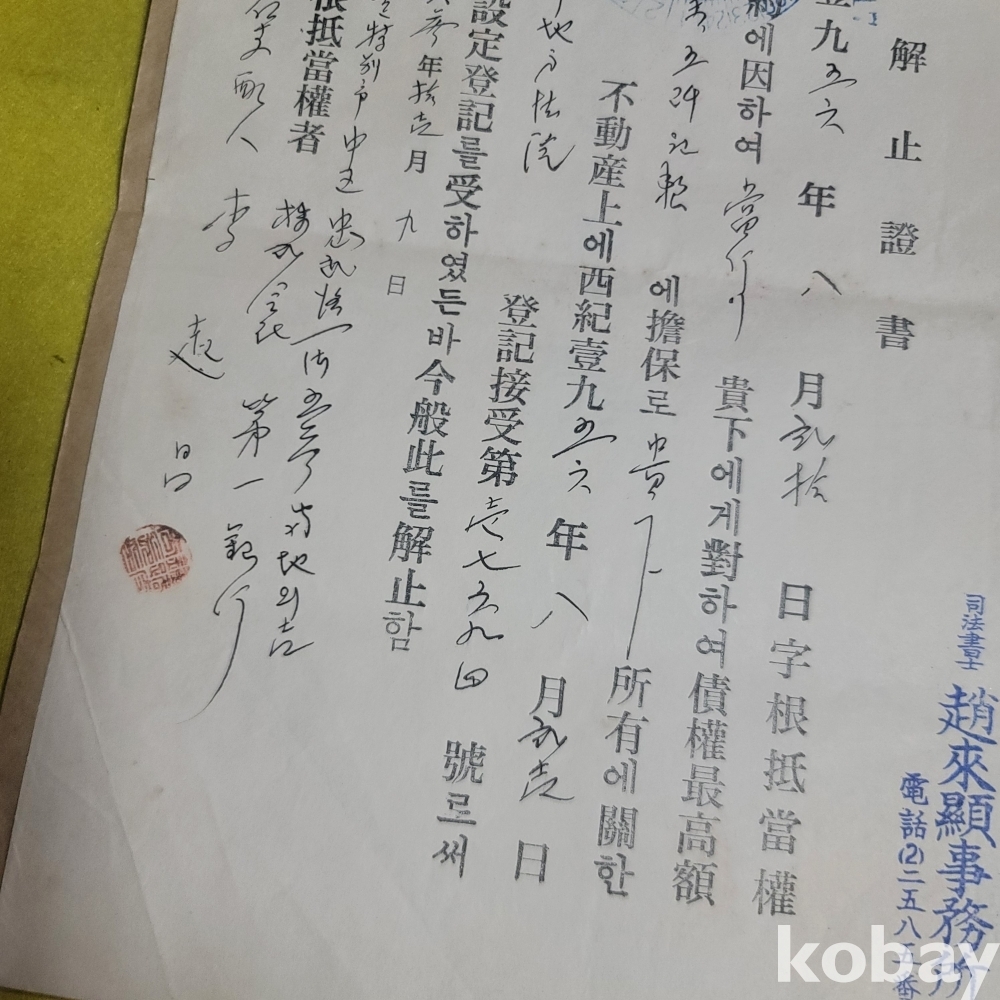 解止證書
壹九五六年八月貳拾日字根抵當權
에因하여當行이貴下에게對하여債權最高額
에擔保로貴下所有에關한
不動産上에西紀壹九五六年八月貳壹日
地方法院登記接受第壹七五九四號로써
設定登記를受하였든바今般此를解止함
年拾壹月九日
特別市中區忠武路一街五
根抵當權者株式會社第一銀行
支配人李
昌
司法書士趙來顯事務所
電話(2)二五八五番
kobay